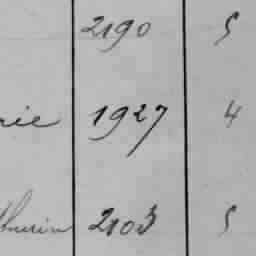 2190 5
rie 1927 4
thurin 2103 5